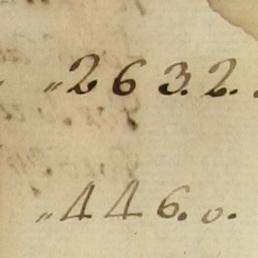 „2632.
„446.0.